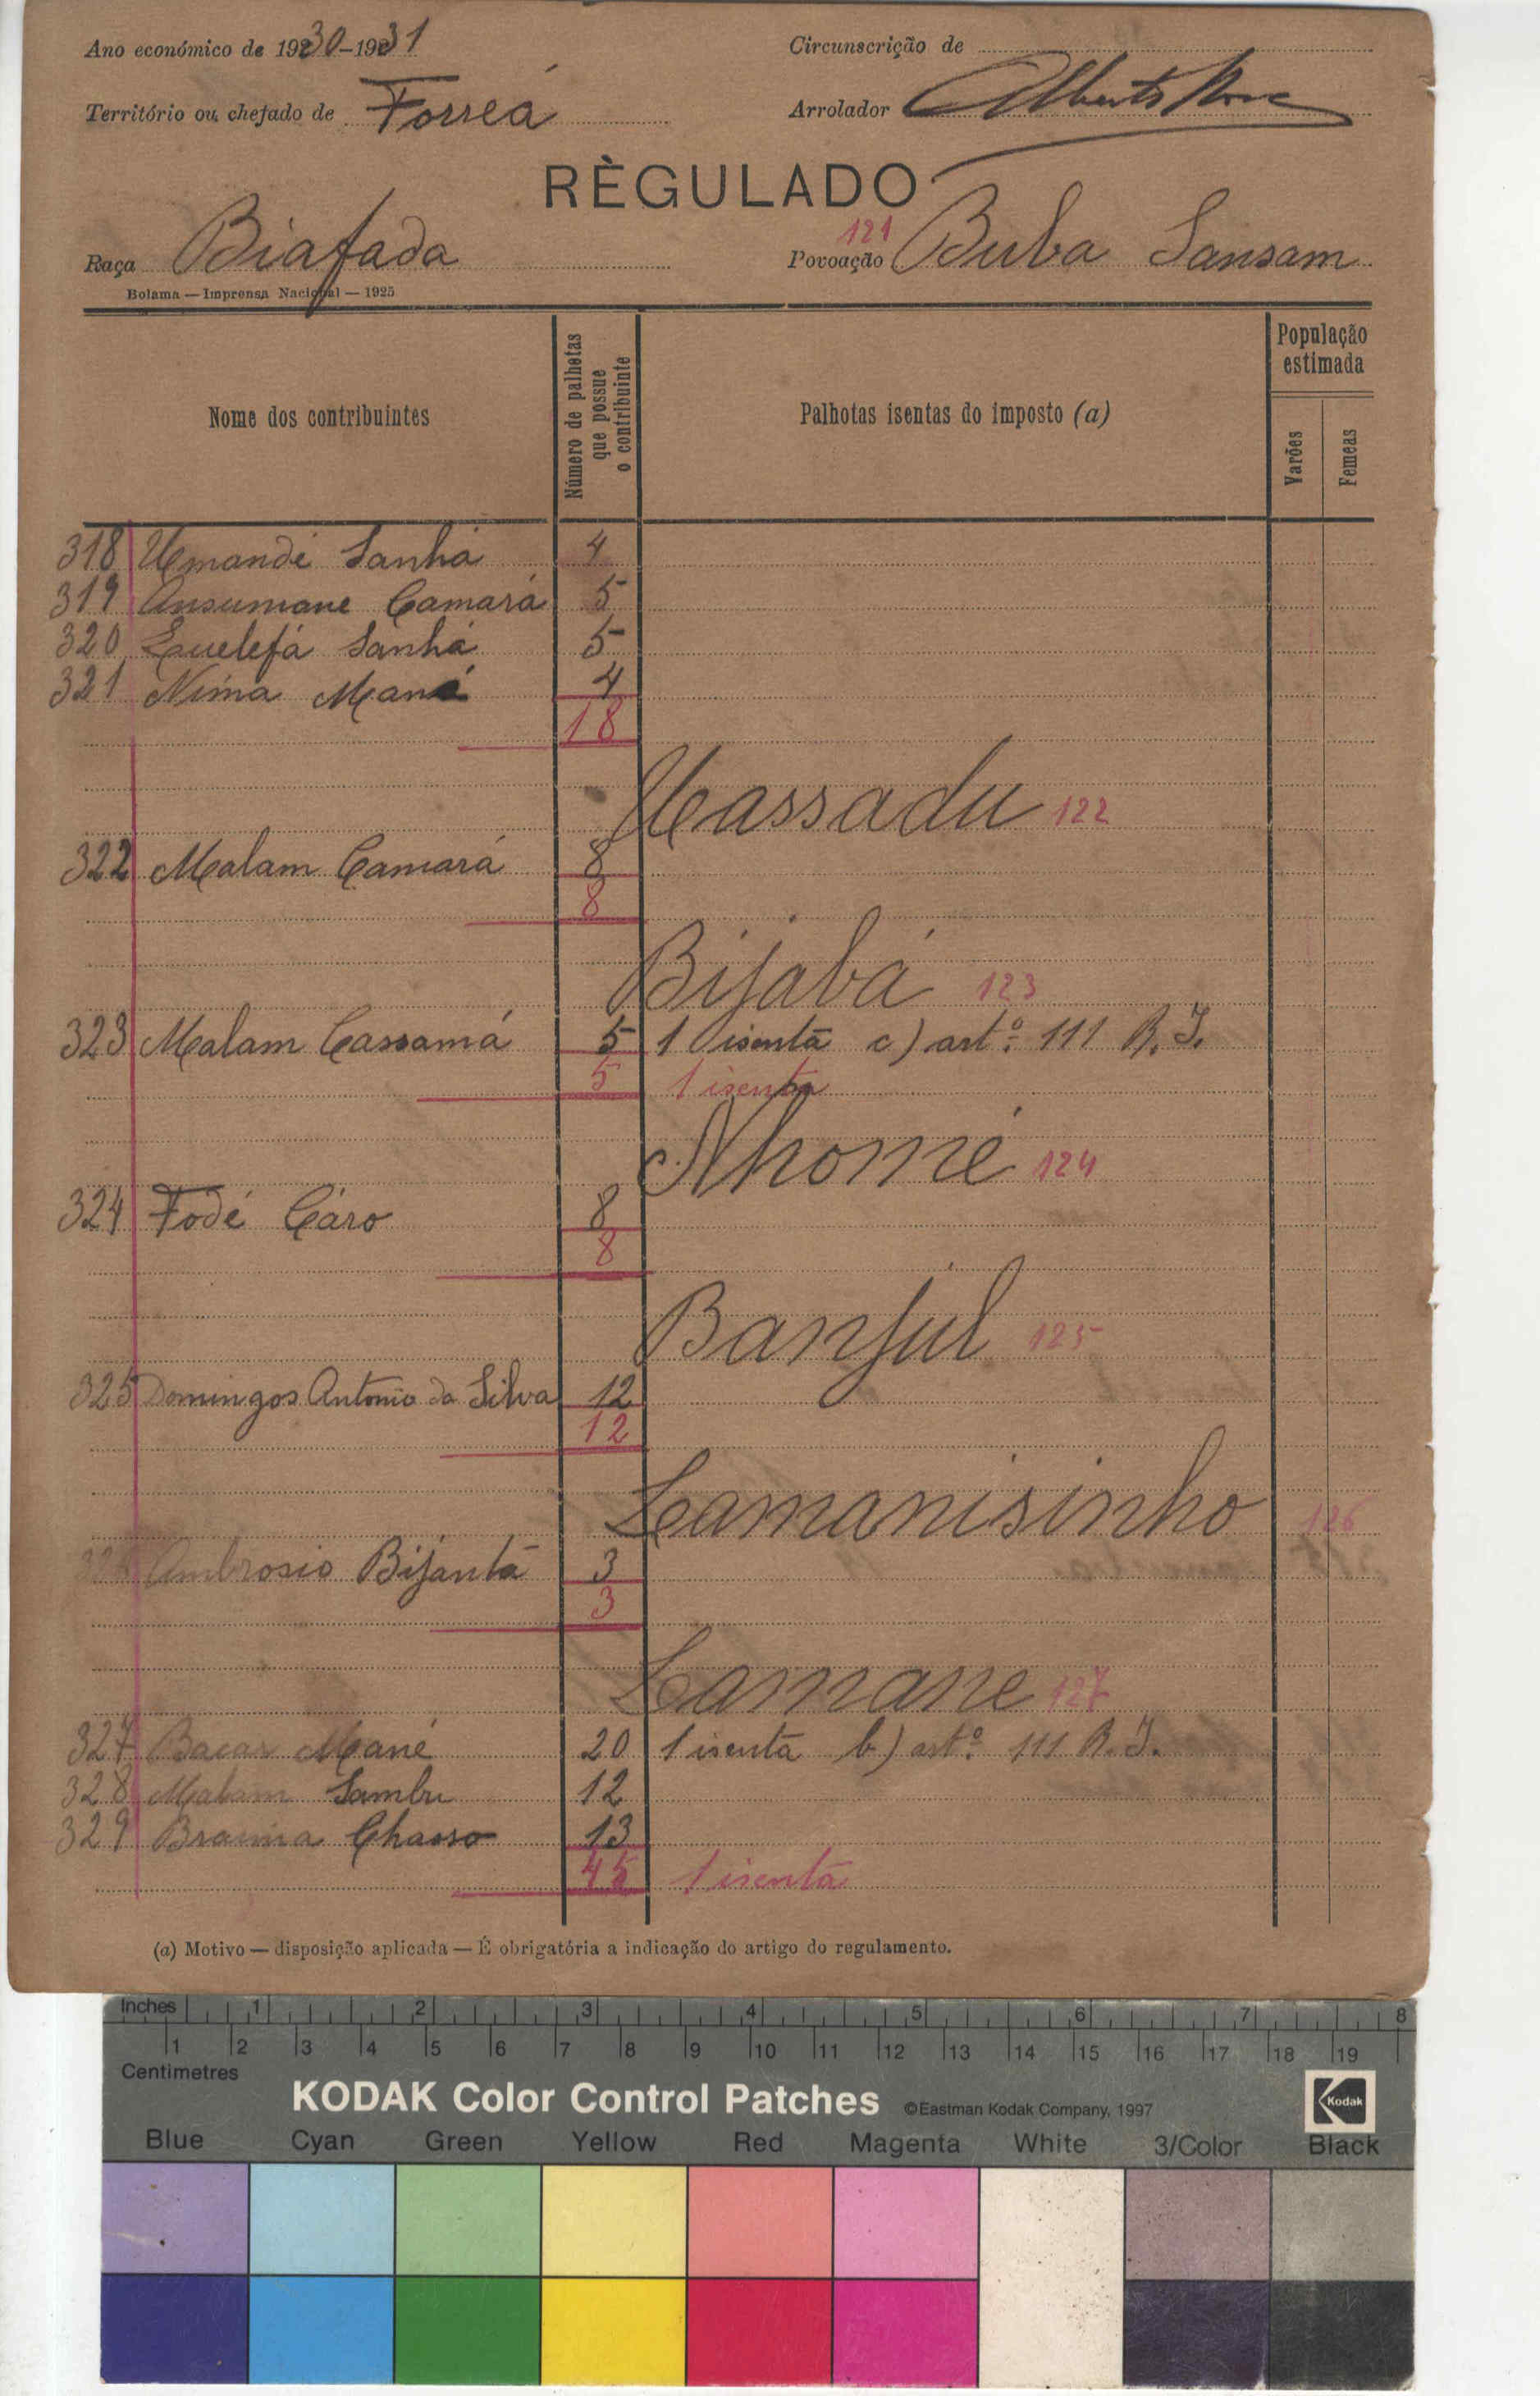 Ano económico de 1930-1931
Circunscrição de
Território ou chefado de Forreá
Arrolador Alberto
RÈGULADO
Raça Biafada
121
Povoação Buba Sansam
Bolama — Imprensa Nacional — 1925
Nome dos contribuintes
Número de palhotas que possue o contribuinte
Palhotas isentas do imposto (a)
População estimada
Varões
Femeas
318 Umandi Sanhá 4
319 Ansumane Camará 5
320 Quelefá Sanhá 5
321 Nima Mané 4
18
Uassadu 122
322 Malam Camará 8
8
Bijabá 123
323 Malam Cassamá 5 1 isenta c) artº. 111 R. I.
5 1 isenta
Nhomé 124
324 Fodé Cáro 8
8
Banjul 125
325 Domingos Antonio da Silva 12
12
Lamanisinho 126
326 Ambrosio Bijantá 3
3
Lamane 127
327 Bacar Mané 20 1 isenta b) artº. 111 R. I.
328 Malam Sambu 12
329 Braima Chasso 13
45 1 isenta
(a) Motivo — disposição aplicada — É obrigatória a indicação do artigo do regulamento.
Inches 1 2 3 4 5 6 7 8
1 2 3 4 5 6 7 8 9 10 11 12 13 14 15 16 17 18 19
Centimetres
KODAK Color Control Patches ©Eastman Kodak Company, 1997 Kodak
Blue Cyan Green Yellow Red Magenta White 3/Color Black